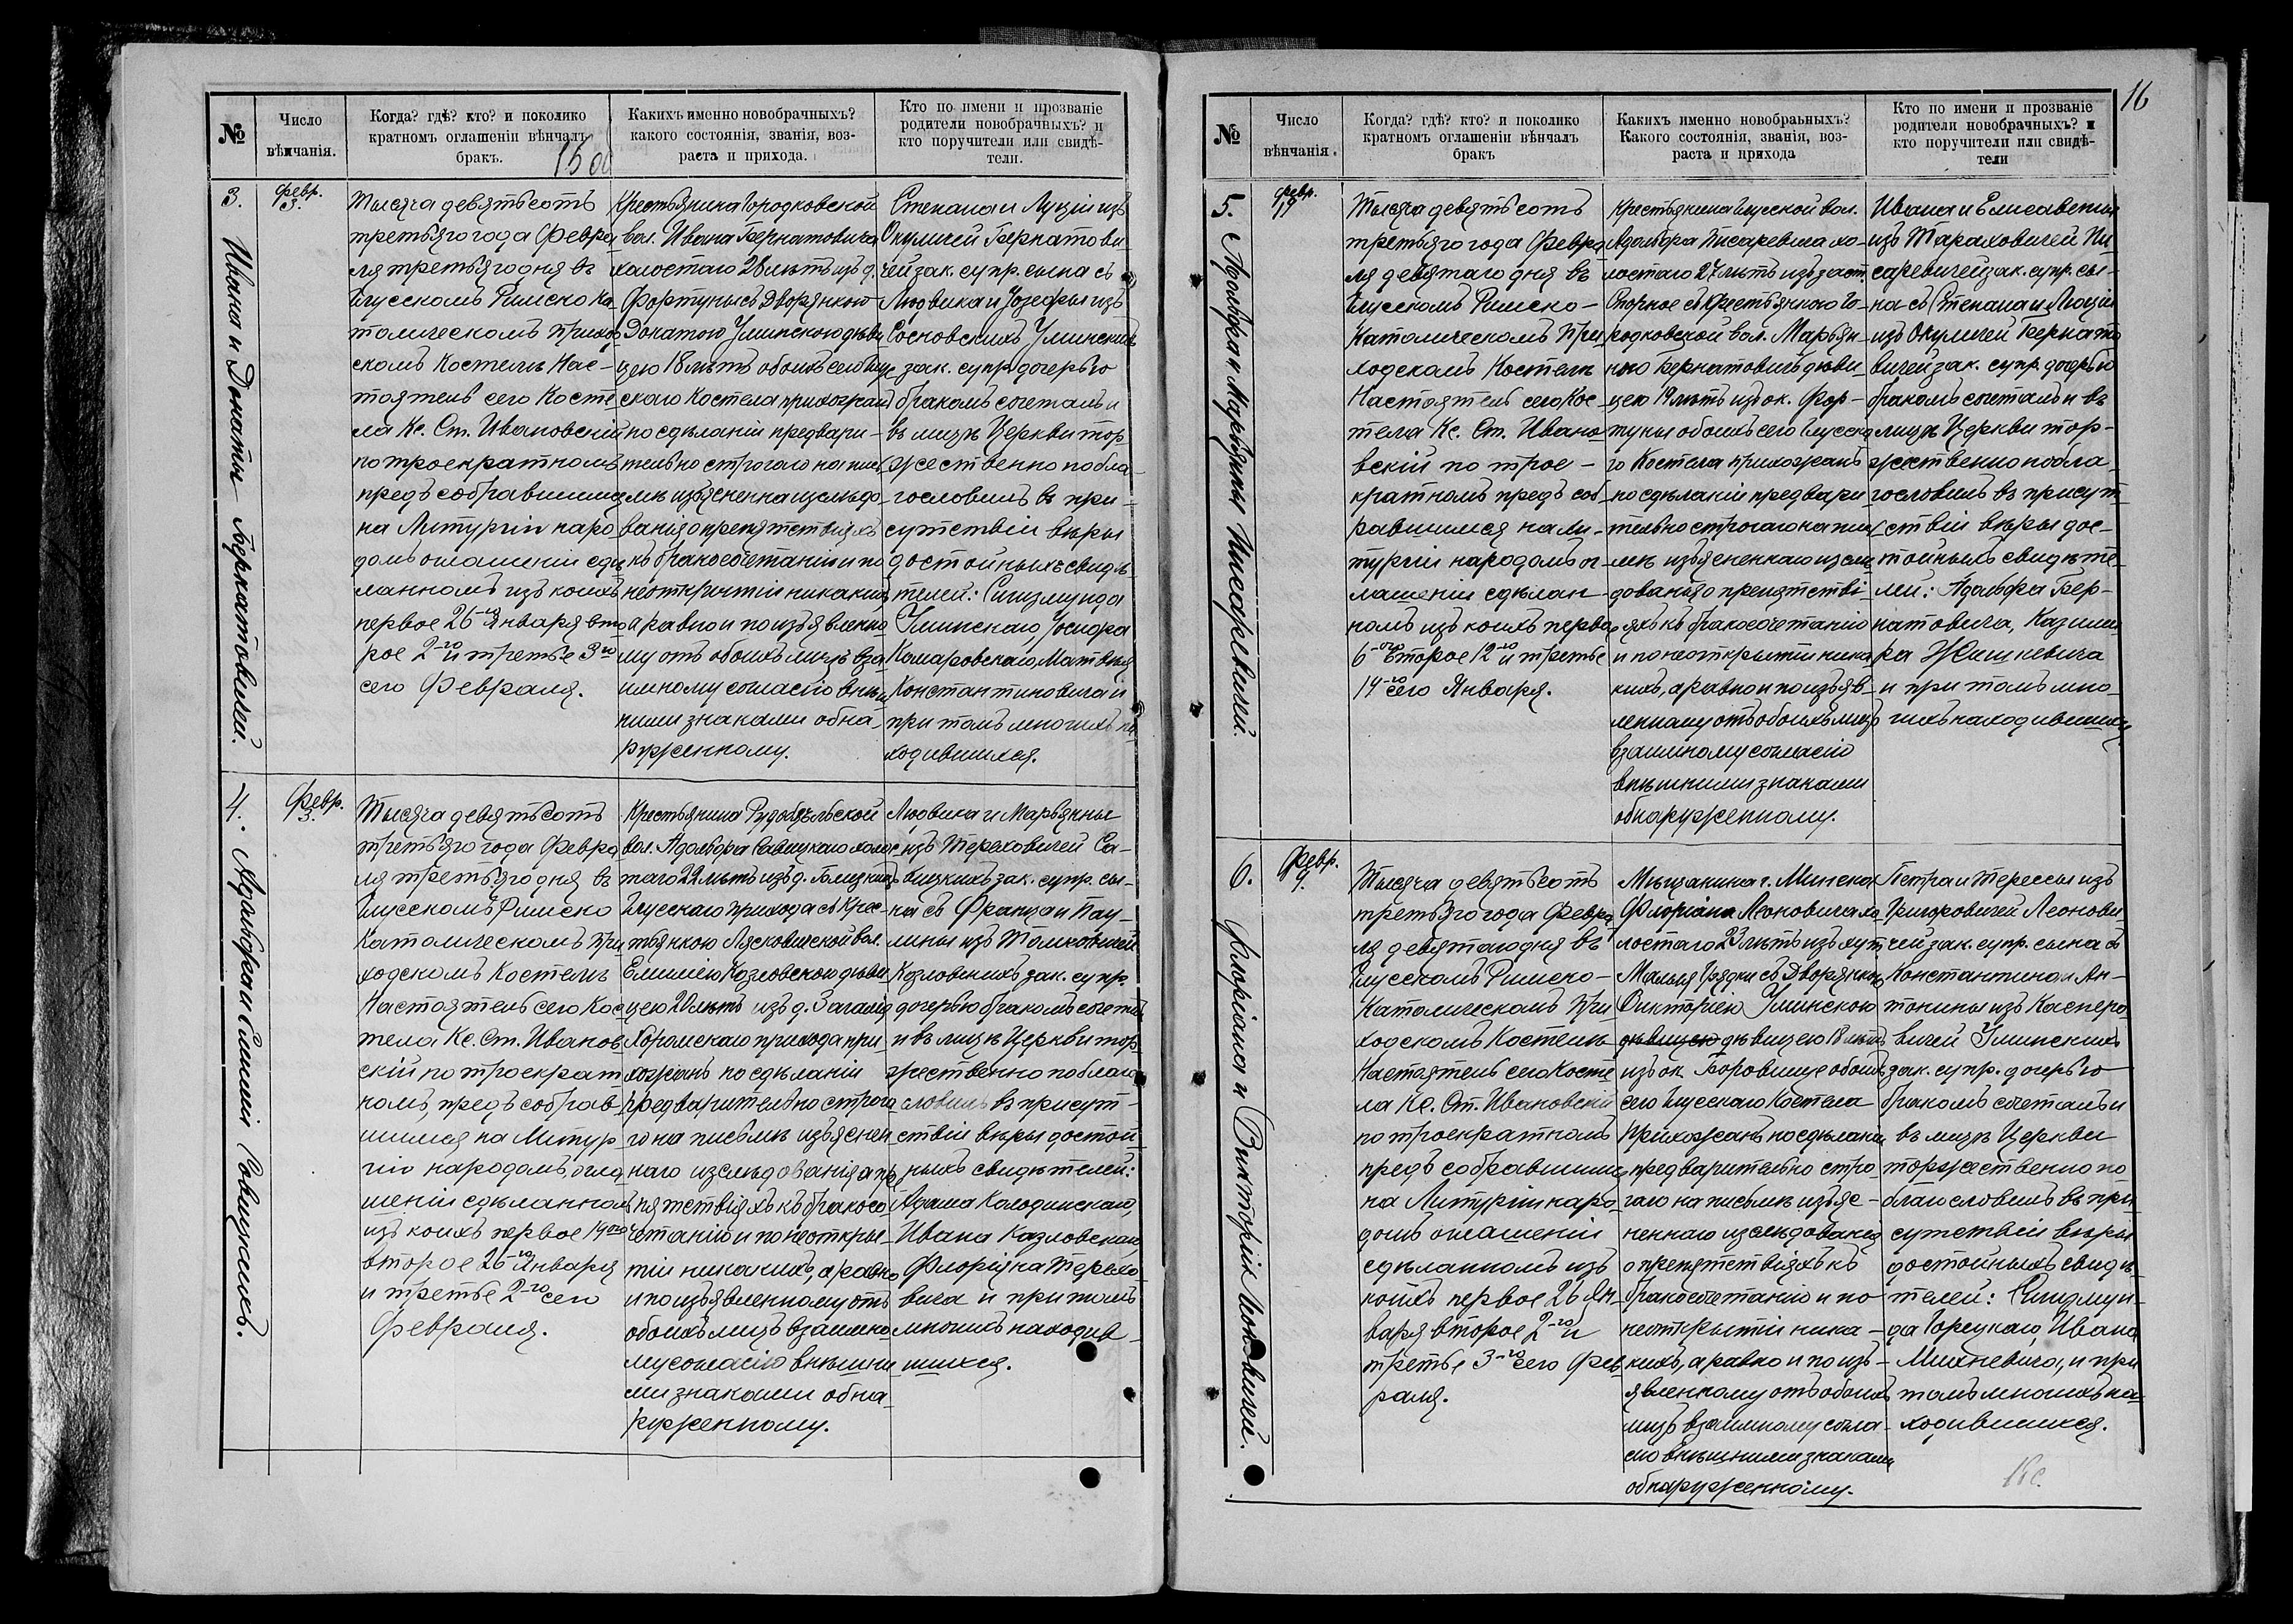 №
Число
вѣнчанія.
Когда? гдѣ? кто? и поколико
кратномъ оглашеніи вѣнчалъ
бракъ.
1500
Какихъ именно новобрачныхъ?
какого состоянія, званія, воз-
раста и прихода.
Кто по имени и прозваніе
родители новобрачныхъ? и
кто поручители или свидѣ-
тели.
3.
Ивана и Донаты Бернатовичей.
Февр.
3.
Тысяча девятьсотъ
третьяго года Февра
ля третьяго дня въ
Глусскомъ Римско Ка
толическомъ приход
скомъ Костелѣ Нас-
тоятель сего Косте
ла Кс. Ст. Ивановскій
по троекратномъ
предъ собравшимся
на Литургіи наро
домъ оглашеніи сдѣ
ланномъ изъ коихъ
первое 26-го Января вто
рое 2-го и третье 3го
сего Февраля.
Крестьянина Городковской
вол. Ивана Бернатовича
холостаго 28 лѣтъ изъ д.
Фортуны съ Дворянкою
Донатою Улинскою дѣви
цею 18 лѣтъ обоихъ сего Глус
скаго Костела прихожанъ
по сдѣланіи предвари-
тельно строгаго на пись
мѣ изъясненна изслѣдо-
ванія о препятствіяхъ
къ бракосочетанію и по
неоткрытіи никакихъ
а равно и по изъявленно
му отъ обоихъ лицъ вза
имному согласію внѣш
ними знаками обна-
руженному.
Степана и Луціи изъ
Окуличей Бернатови
чей зак. супр. сына съ
Людвика и Іозефы изъ
Сосновскихъ Улинскихъ
зак. супр. дочерью
бракомъ сочеталъ и
въ лицѣ Церкви тор
жественно побла-
гословилъ въ при-
сутствіи вѣры
достойныхъ свидѣ-
телей: Сигизмунда
Улинскаго Іосифа
Комаровскаго, Матвѣя
Константиновича и
при томъ многихъ на
ходившихся.
4.
Адольфа и Емиліи Савицкихъ.
Февр.
3.
Тысяча девятьсотъ
третьяго года Февра
ля третьяго дня въ
Глусскомъ Римско
Католическомъ При
ходскомъ Костелѣ
Настоятель сего Кос
тела Кс. Ст. Иванов
скій по троекрат
номъ, предъ собрав-
шимся на Литур
гію народомъ, огла
шеніи сдѣланномъ
изъ коихъ первое 19ого
второе 26-го Января
и третье 2-го сего
Февраля.
Крестьянина Рудобѣльской
вол. Адольфа Савицкаго холос
таго 22 лѣтъ изъ д.
Глусскаго прихода съ Крес-
тьянкою Лясковичской вол.
Емиліею Козловскою дѣви
цею 20 лѣтъ изъ д. Загалья
Хоромскаго прихода при-
хожанъ по сдѣланіи
предварительно строга
го на письмѣ изъяснен
наго изслѣдованія о пре
пятствіяхъ къ бракосо
четанію и по неоткры-
тіи никакихъ, а равно
и по изъявленному отъ
обоихъ лицъ взаимно
му согласію внѣшни
ми знаками обна-
руженному.
Людвика и Марьянны
изъ Тереховичей Са-
вицкихъ зак. супр. сы-
на съ Франца и Пау-
лины изъ Томковичей
Козловскихъ зак. супр.
дочерью бракомъ сочеталъ
и въ лицѣ Церкви тор
жественно поблаго
словилъ въ присут-
ствіи вѣры достой
ныхъ свидѣтелей:
Адама Колодинскаго,
Ивана Казловскаго,
Флоріяна Терехо-
вича и при томъ
многихъ находив-
шихся.
16
№
Число
вѣнчанія.
Когда? гдѣ? кто? и поколико
кратномъ оглашеніи вѣнчалъ
бракъ
Какихъ именно новобраьныхъ?
Какого состоянія, званія, воз-
раста и прихода
Кто по имени и прозваніе
родители новобрачныхъ? и
кто поручители или свидѣ-
тели
5.
Адольфа и Марьяны Писаревичей.
Февр.
Тысяча девятьсотъ
третьяго года Февра
ля девятаго дня въ
Глусскомъ Римско-
Католическомъ При
ходскомъ Костелѣ
Настоятель сего Кос-
тела Кс. Ст. Ивано
вскій по трое-
кратномъ предъ соб-
равшимся на Ли-
тургіи народомъ ог-
лашеніи сдѣлан-
номъ изъ коихъ первое
6-ого второе 12-го и третье
19-го сего Января.
Крестьянина Глусской вол.
Адольфа Писаревича хо-
лостаго 27 лѣтъ изъ заст.
съ Крестьянкою Го-
родковской вол. Марьян-
ною Бернатовичъ дѣви-
цею 19 лѣтъ изъ ок. Фор-
туны обоихъ сего Глусска
го Костела прихожанъ
по сдѣланіи предвари
тельно строгаго на пись
мѣ изъясненнаго изслѣ
дованья о препятстві-
яхъ къ бракосочетанію
и по неоткрытіи ника
кихъ, а равно и по изъяв-
ленному отъ обоихъ лицъ
взаимному согласію
внѣшними знаками
обнаруженному.
Ивана и Елисаветы
изъ Тараховичей Пи
саревичей зак. супр. сы-
на съ Степана и Люціи
изъ Окуличей Бернато
вичей зак. супр. дочерью
бракомъ сочеталъ и въ
лицѣ Церкви тор-
жественно побла-
гословилъ въ присут
ствіи вѣры дос-
тойныхъ свидѣте-
лей: Адольфа Бер-
натовича, Казими
ра
и при томъ мно-
гихъ находившихся.
6.
Флоріана и Викторіи Леоновичей.
Февр.
9.
Тысяча девятьсотъ
третьяго года Февра
ля девятаго дня въ
Глусскомъ Римско-
Католическомъ При
ходскомъ Костелѣ
Настоятель сего Косте
ла Кс. Ст. Ивановскій
по троекратномъ
предъ собравшимся
на Литургіи наро-
домъ оглашеніи
сдѣланномъ изъ
коихъ первое 26 Ян-
варя второе 2-го и
третье 3-го сего Фев
раля.
Мѣщанина г. Минска
Флоріана Леоновича хо
лостаго 23 лѣтъ изъ хут
Малыя Грядки съ Дворянкою
Викторіею Улинскою
дѣвицею дѣвицею 18 лѣтъ
изъ ок. Боровище обоихъ
сего Глусскаго Костела
Прихожанъ по сдѣланіи
предварительно стро
гаго на письмѣ изъяс-
неннаго изслѣдованія
о препятствіяхъ къ
бракосочетанію и по
неоткрытіи ника-
кихъ, а равно и по изъ-
явленному отъ обоихъ
лицъ взаимному согла-
сію внѣшними знаками
обнаруженному.
Петра и Терессы изъ
Григоровичей Леонови
чей зак. супр. сына съ
Константина и Ан-
тонины изъ Касперо-
вичей Улинскихъ
зак. супр. дочерью
бракомъ сочеталъ и
въ лицѣ Церкви
торжественно по
благословилъ въ при
сутствіи вѣры
достойныхъ свидѣ-
телей: Сигизмун-
да Горецкаго, Ивана
Михневича, и при
томъ многихъ на-
ходившихся.